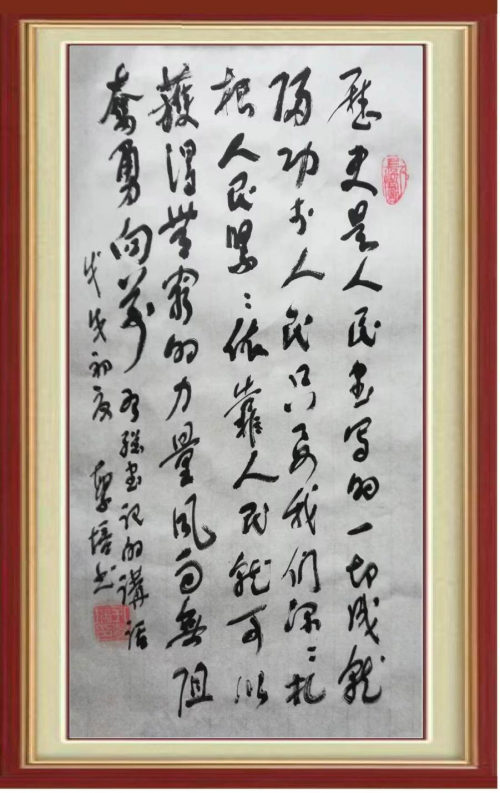 歷史是人民書写的一切成就
歸功于人民只要我們深:扎
根人民緊:依靠人民就可以
獲得無窮的力量風雨無阻
奮勇向前
總書记的講話
戊戌初夏 培書